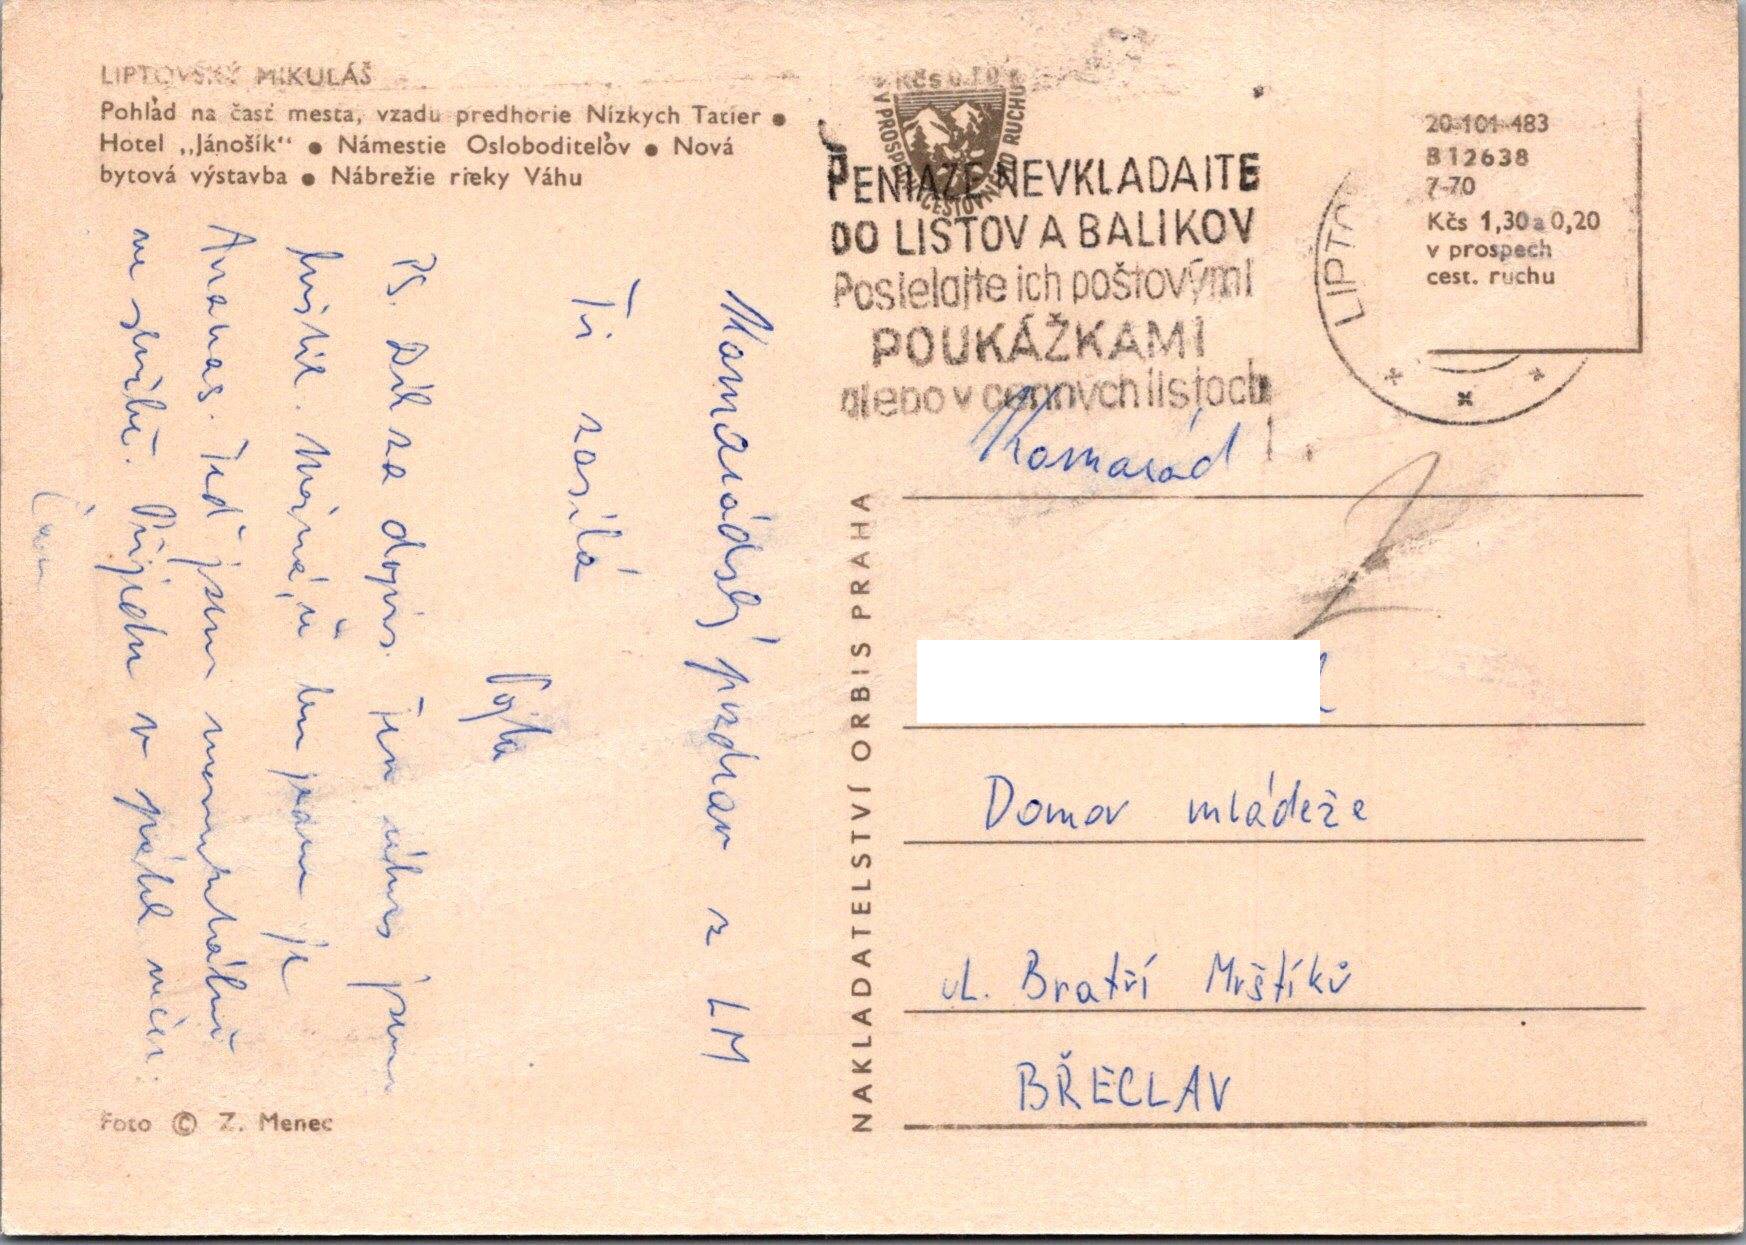 LIPTOVSKÝ MIKULÁŠ
Pohľad na časť mesta, vzadu predhorie Nízkych Tatier ●
Hotel „Jánošík“ ● Námestie Osloboditeľov ● Nová
bytová výstavba ● Nábrežie rieky Váhu
Kamarádský pozdrav z LM
Ti zasílá
Vojta
PS. Dík za dopis. Jen
je
Ananas. Teď jsem momentálně
ve službě. Přijedu v pátek
Foto © Z. Menec
NAKLADATELSTVÍ ORBIS PRAHA
Kčs 0.70
V PROSPECH CESTOVNÉHO RUCHU
PENIAZE NEVKLADAJTE
DO LISTOV A BALIKOV
Posielajte ich poštovými
POUKÁŽKAMI
alebo v cenných listoch
LIPTO
20-101-483
B 12638
7-70
Kčs 1,30 a 0,20
v prospech
cest. ruchu
Kamarád
Domov mládeže
ul. Bratří Mrštíků
BŘECLAV